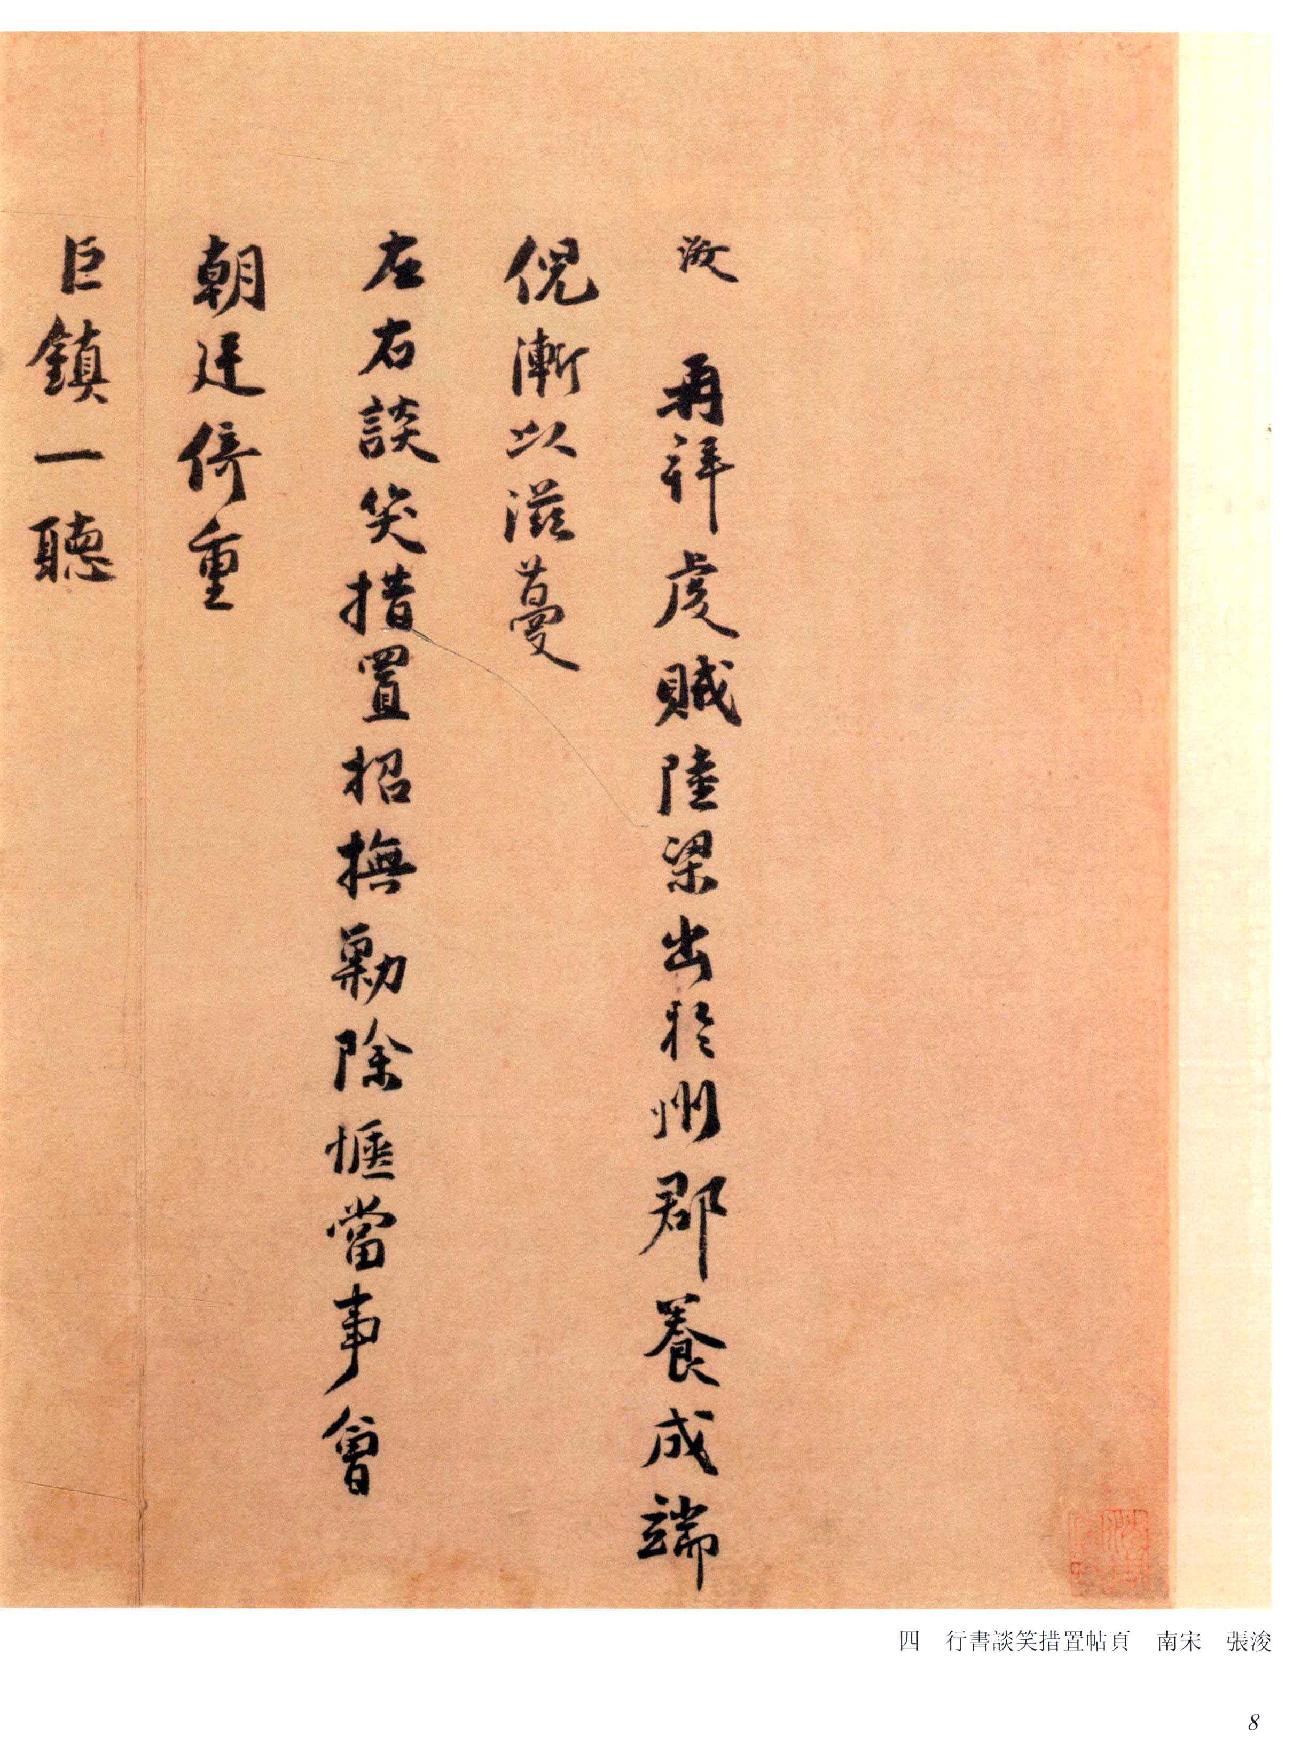 浚 再拜虔賊陸梁出於州郡養成端
倪漸以滋蔓
左右談笑措置招撫勦除愜當事會
朝廷倚重
巨鎮一聽
四 行書談笑措置帖頁 南宋 張浚
8